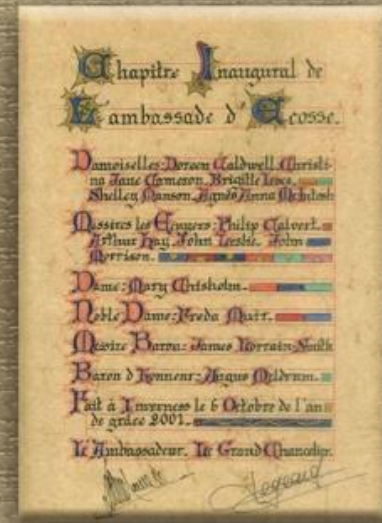 Chapitre Inaugural de
L'ambassade d'Ecosse.
Damoiselles: Doreen Caldwell, Christi-
na Jane Cameron, Brigitte
Shelley Manson, Agnès Anna McIntosh
Messires les Ecuyers: Philip Calvert.
Arthur Hay, John Leslie, John
Morrison.
Dame: Mary Chisholm.
Noble Dame: Freda Muir.
Messire Baron: James Lorrain-Smith
Baron d'honneur: Angus Meldrum.
Fait à Inverness le 6 Octobre de l'an
de grâce 2001.
L'Ambassadeur. Le Grand Chancelier.